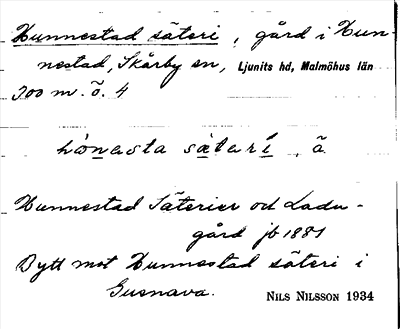 Hunnestad säteri, gård i Hun-
nestad, Skårby sn, Ljunits hd, Malmöhus län
Joo m. ö. 4
hònasta sätarí, ā
Hunnestad Säterier och Ladu-
gård jb 1881
Bytt mot Hunnestad säteri i
Gusnava.
NILS NILSSON 1934